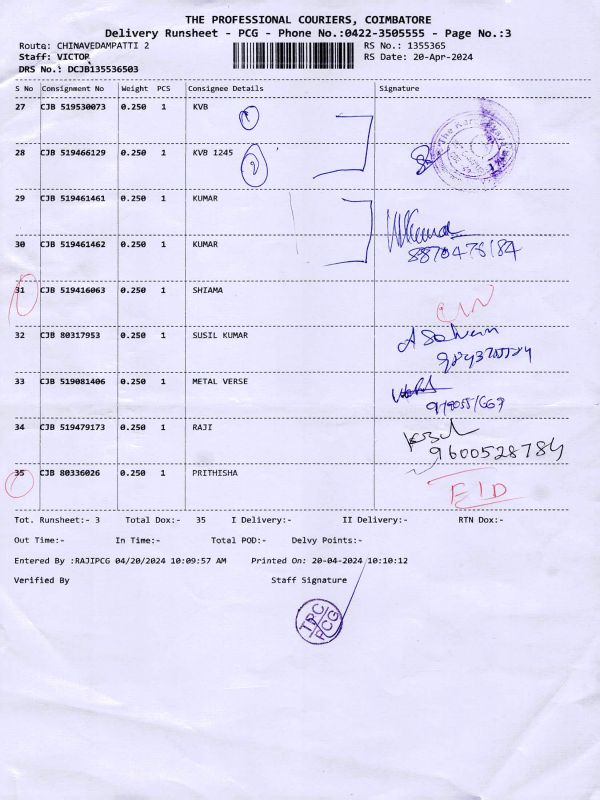 THE PROFESSIONAL COURIERS, COIMBATORE
Delivery Runsheet - PCG - Phone No.:0422-3505555 - Page No.:3
Route: CHINAVEDAMPATTI 2 RS No.: 1355365
Staff: VICTOR RS Date: 20-Apr-2024
DRS No.: DCJB135536503
S No Consignment No Weight PCS Consignee Details Signature
27 CJB 519530073 0.250 1 KVB
28 CJB 519466129 0.250 1 KVB 1245
29 CJB 519461461 0.250 1 KUMAR
30 CJB 519461462 0.250 1 KUMAR
8870478184
31 CJB 519416063 0.250 1 SHIAMA
32 CJB 80317953 0.250 1 SUSIL KUMAR
33 CJB 519081406 0.250 1 METAL VERSE
34 CJB 519479173 0.250 1 RAJI
9600528784
35 CJB 80336026 0.250 1 PRITHISHA
Tot. Runsheet:- 3 Total Dox:- 35 I Delivery:- II Delivery:- RTN Dox:-
Out Time:- In Time:- Total POD:- Delvy Points:-
Entered By :RAJIPCG 04/20/2024 10:09:57 AM Printed On: 20-04-2024 10:10:12
Verified By Staff Signature
TPC
PCG